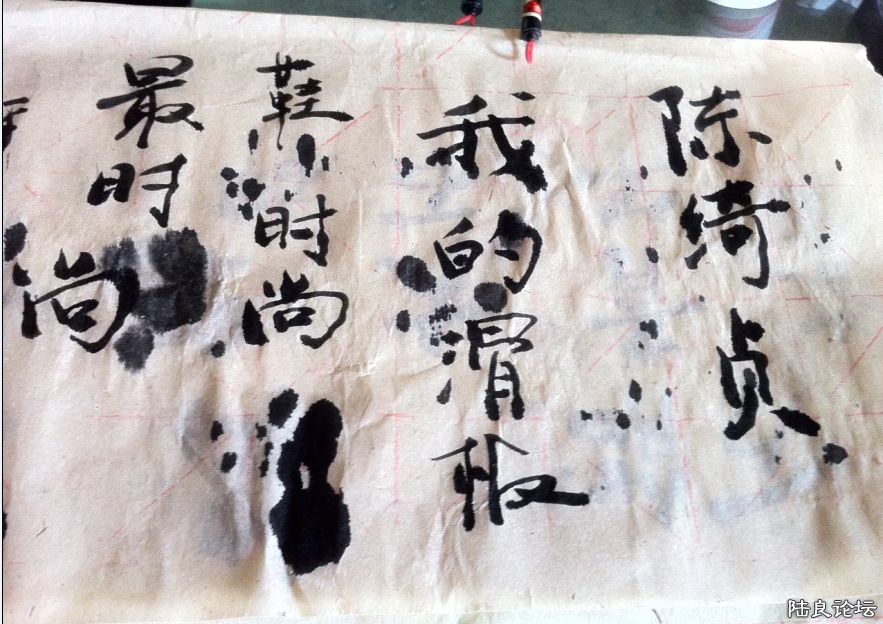 陈绮贞
我的滑板
鞋时尚
最时尚
陆良论坛